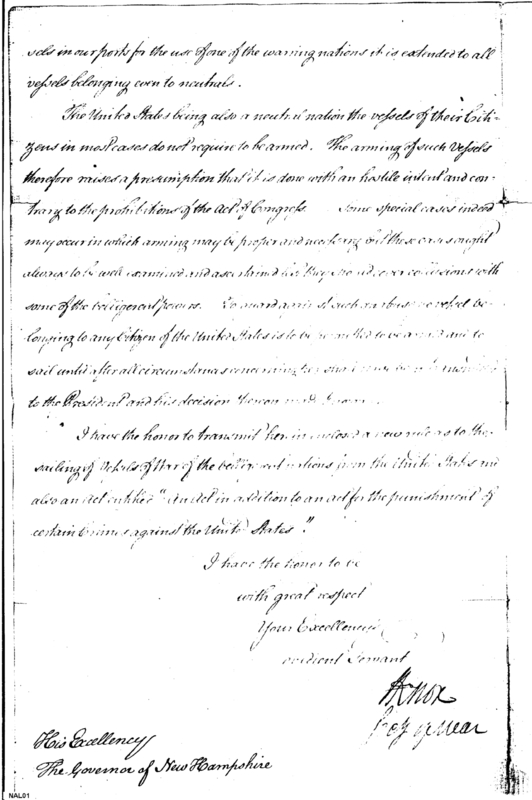 sels in our ports for the use of one of the warring nations it is extended to all
vessels belonging even to neutrals.
The United States being also a neutral nation the vessels of their Citi-
zens in most cases do not require to be armed. The arming of such Vessels
therefore raises a presumption that it is done with an hostile intent and con-
trary to the prohibitions of the Act of Congress. Some special cases indeed
may occur in which arming may be proper and necessary but these cases ought
always to be well examined and ascertained collusions with
some of the belligerent powers. To guard against such an abuse no vessel be-
longing to any Citizen of the United States is to be permitted to be armed and to
sail until after all circumstances concerning
to the President and his decision thereon made known.
I have the honor to transmit herein enclosed a new rule as to the
sailing of Vessels of War of the belligerent nations from the United States and
also an Act entitled "An Act in addition to an act for the punishment of
certain Crimes against the United States".
I have the honor to be
with great respect
Your Excellency's
obedient Servant
HKnox
Secy of War
His Excellency
The Governor of New Hampshire
NAL01